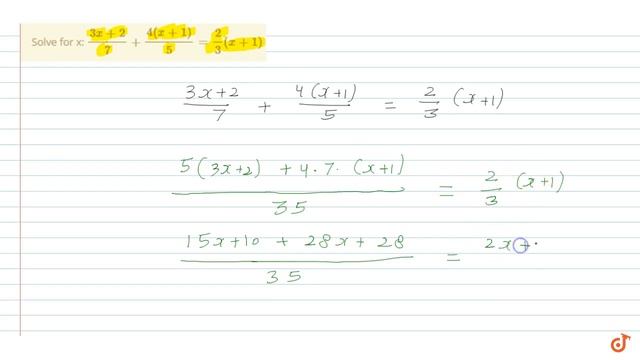 Solve for x: (3x + 2)/7 + 4(x + 1)/5 = 2/3 (x + 1)
(3x+2)/7 + 4(x+1)/5 = 2/3 (x+1)
(5(3x+2) + 4·7·(x+1))/35 = 2/3 (x+1)
(15x+10 + 28x + 28)/35 = 2x +